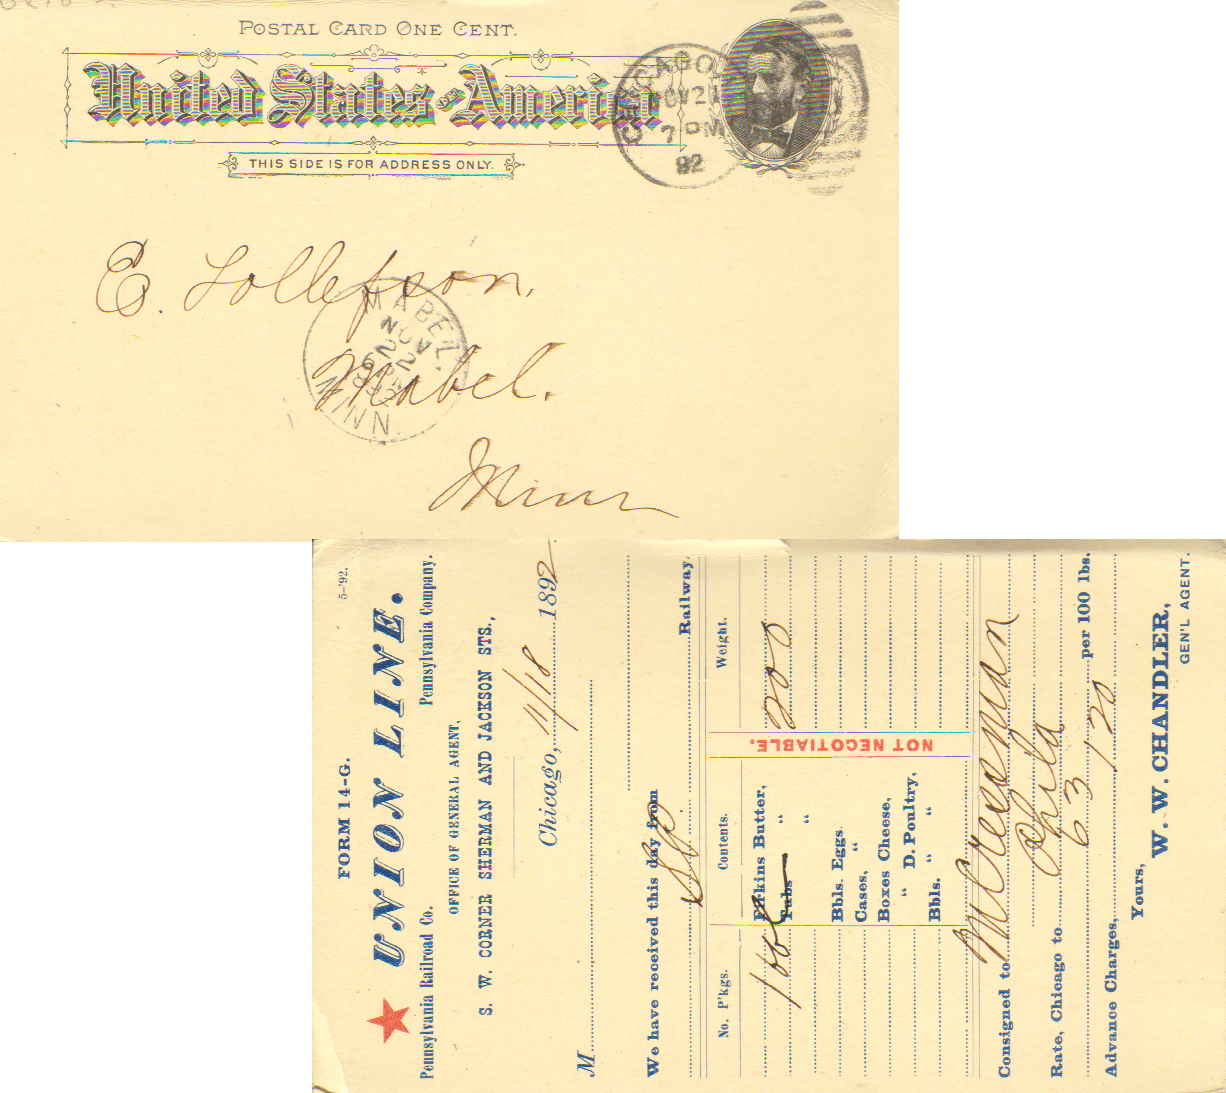 POSTAL CARD ONE CENT.
United States of America
THIS SIDE IS FOR ADDRESS ONLY.
CHICAGO
NOV 21
7 PM
92
E. Tollefson.
Mabel.
Minn
MABEL
NOV
22
MINN.
5-'92.
FORM 14-G.
UNION LINE.
Pennsylvania Railroad Co. Pennsylvania Company.
OFFICE OF GENERAL AGENT,
S. W. CORNER SHERMAN AND JACKSON STS.,
Chicago, 11/18 1892
M
We have received this day from
Railway.
No. P'kgs. Contents. Weight.
Firkins Butter,
Tubs " 200
"
Bbls. Eggs.
Cases, "
Boxes Cheese,
" D. Poultry,
Bbls. " "
NOT NEGOTIABLE.
Consigned to
Phila
Rate, Chicago to 63 per 100 lbs.
Advance Charges, 120
Yours,
W. W. CHANDLER,
GEN'L AGENT.